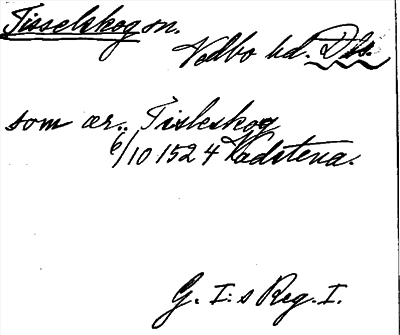 Tisselskog sn.
Vedbo hd. Dls.
som ær.. Tisleskog
6/10 1524 Vadstena.
G. I:s Reg. I.